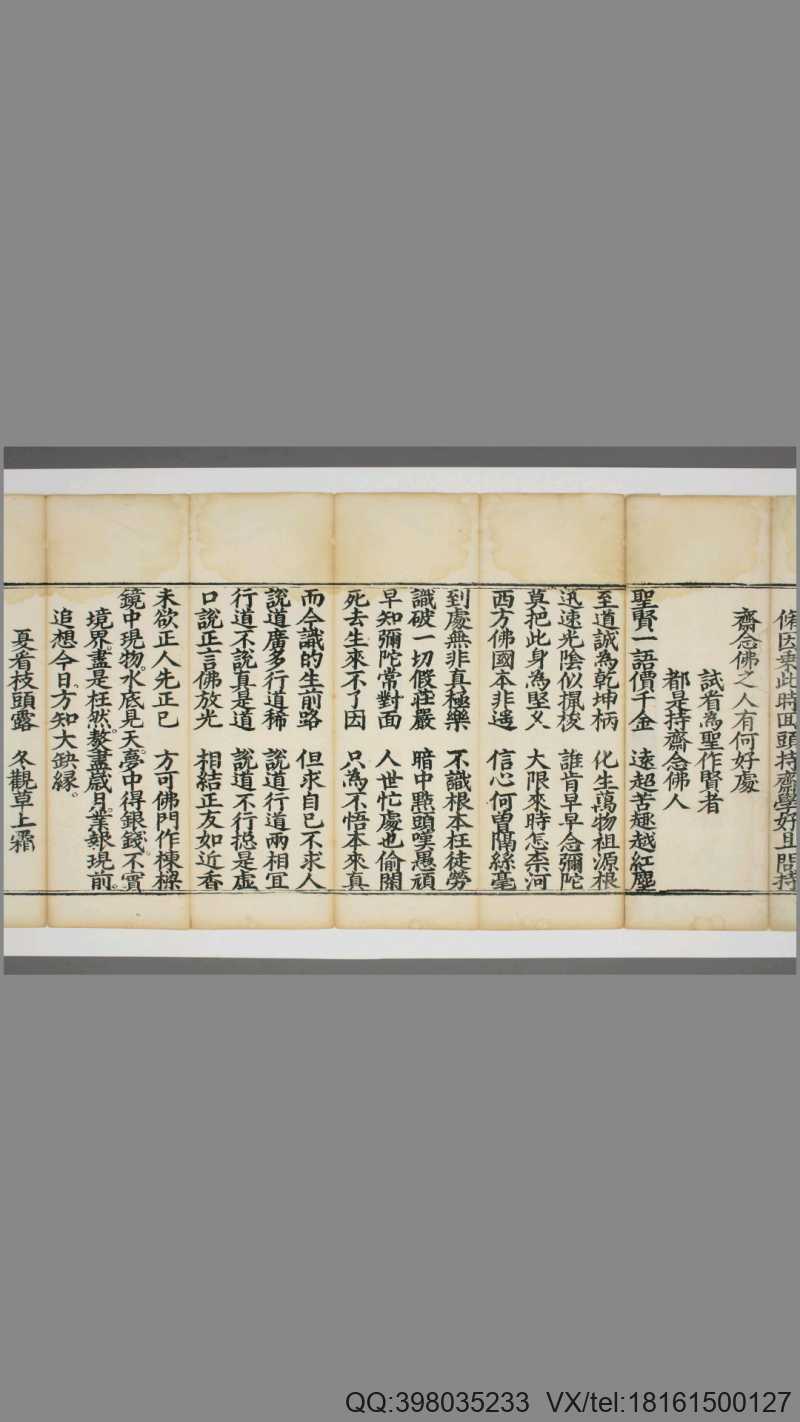 脩因乘此時回頭持齋學好且問持
齋念佛之人有何好處
試看為聖作賢者
都是持齋念佛人
聖賢一語價千金 遠超苦趣越紅塵
至道誠為乾坤柄 化生萬物祖源根
迅速光陰似攛梭 誰肯早早念彌陀
莫把此身為堅久 大限來時怎柰何
西方佛國本非遙 信心何曾隔絲毫
到處無非真極樂 不識根本枉徒勞
識破一切假莊嚴 暗中㸃頭嘆愚頑
早知彌陀常對面 人世忙處也偷閑
死去生來不了因 只為不悟本來真
而今識的生前路 但求自己不求人
說道廣多行道稀 說道行道兩相宜
行道不說真是道 說道不行揔是虛
口說正言佛放光 相結正友如近香
未欲正人先正己 方可佛門作棟樑
鏡中現物。水底見天。夢中得銀錢。不實
境界。盡是枉然。教盡歲月。業報現前。
追想今日。方知大缺緣。
夏看枝頭露 冬觀草上霜
QQ:398035233 VX/tel:18161500127